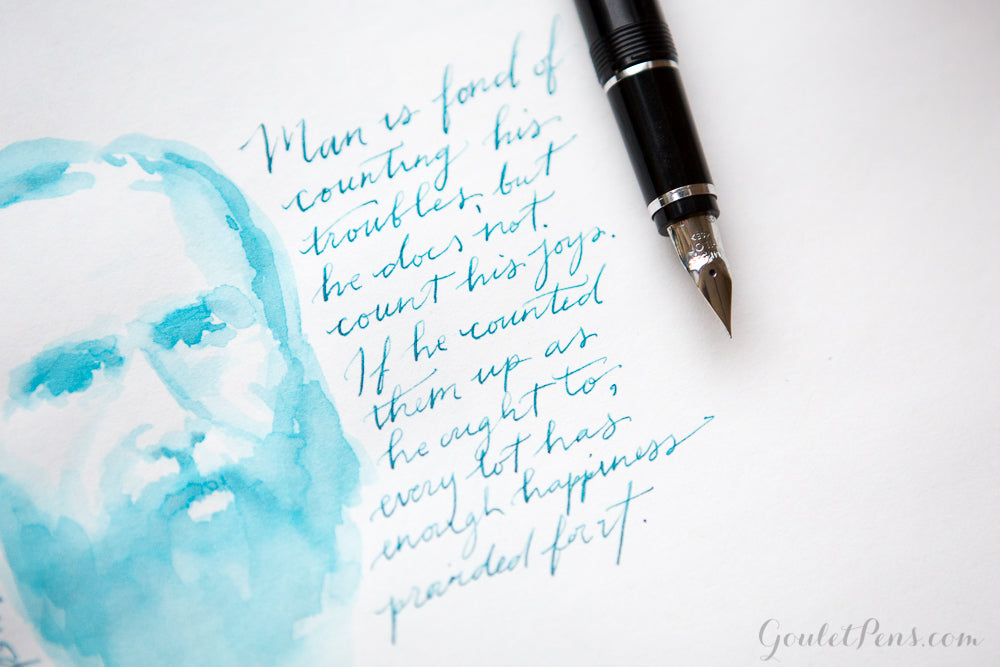 Man is fond of
counting his
troubles, but
he does not.
count his joys.
If he counted
them up as
he ought to,
every lot has
enough happiness
provided for it.
GouletPens.com